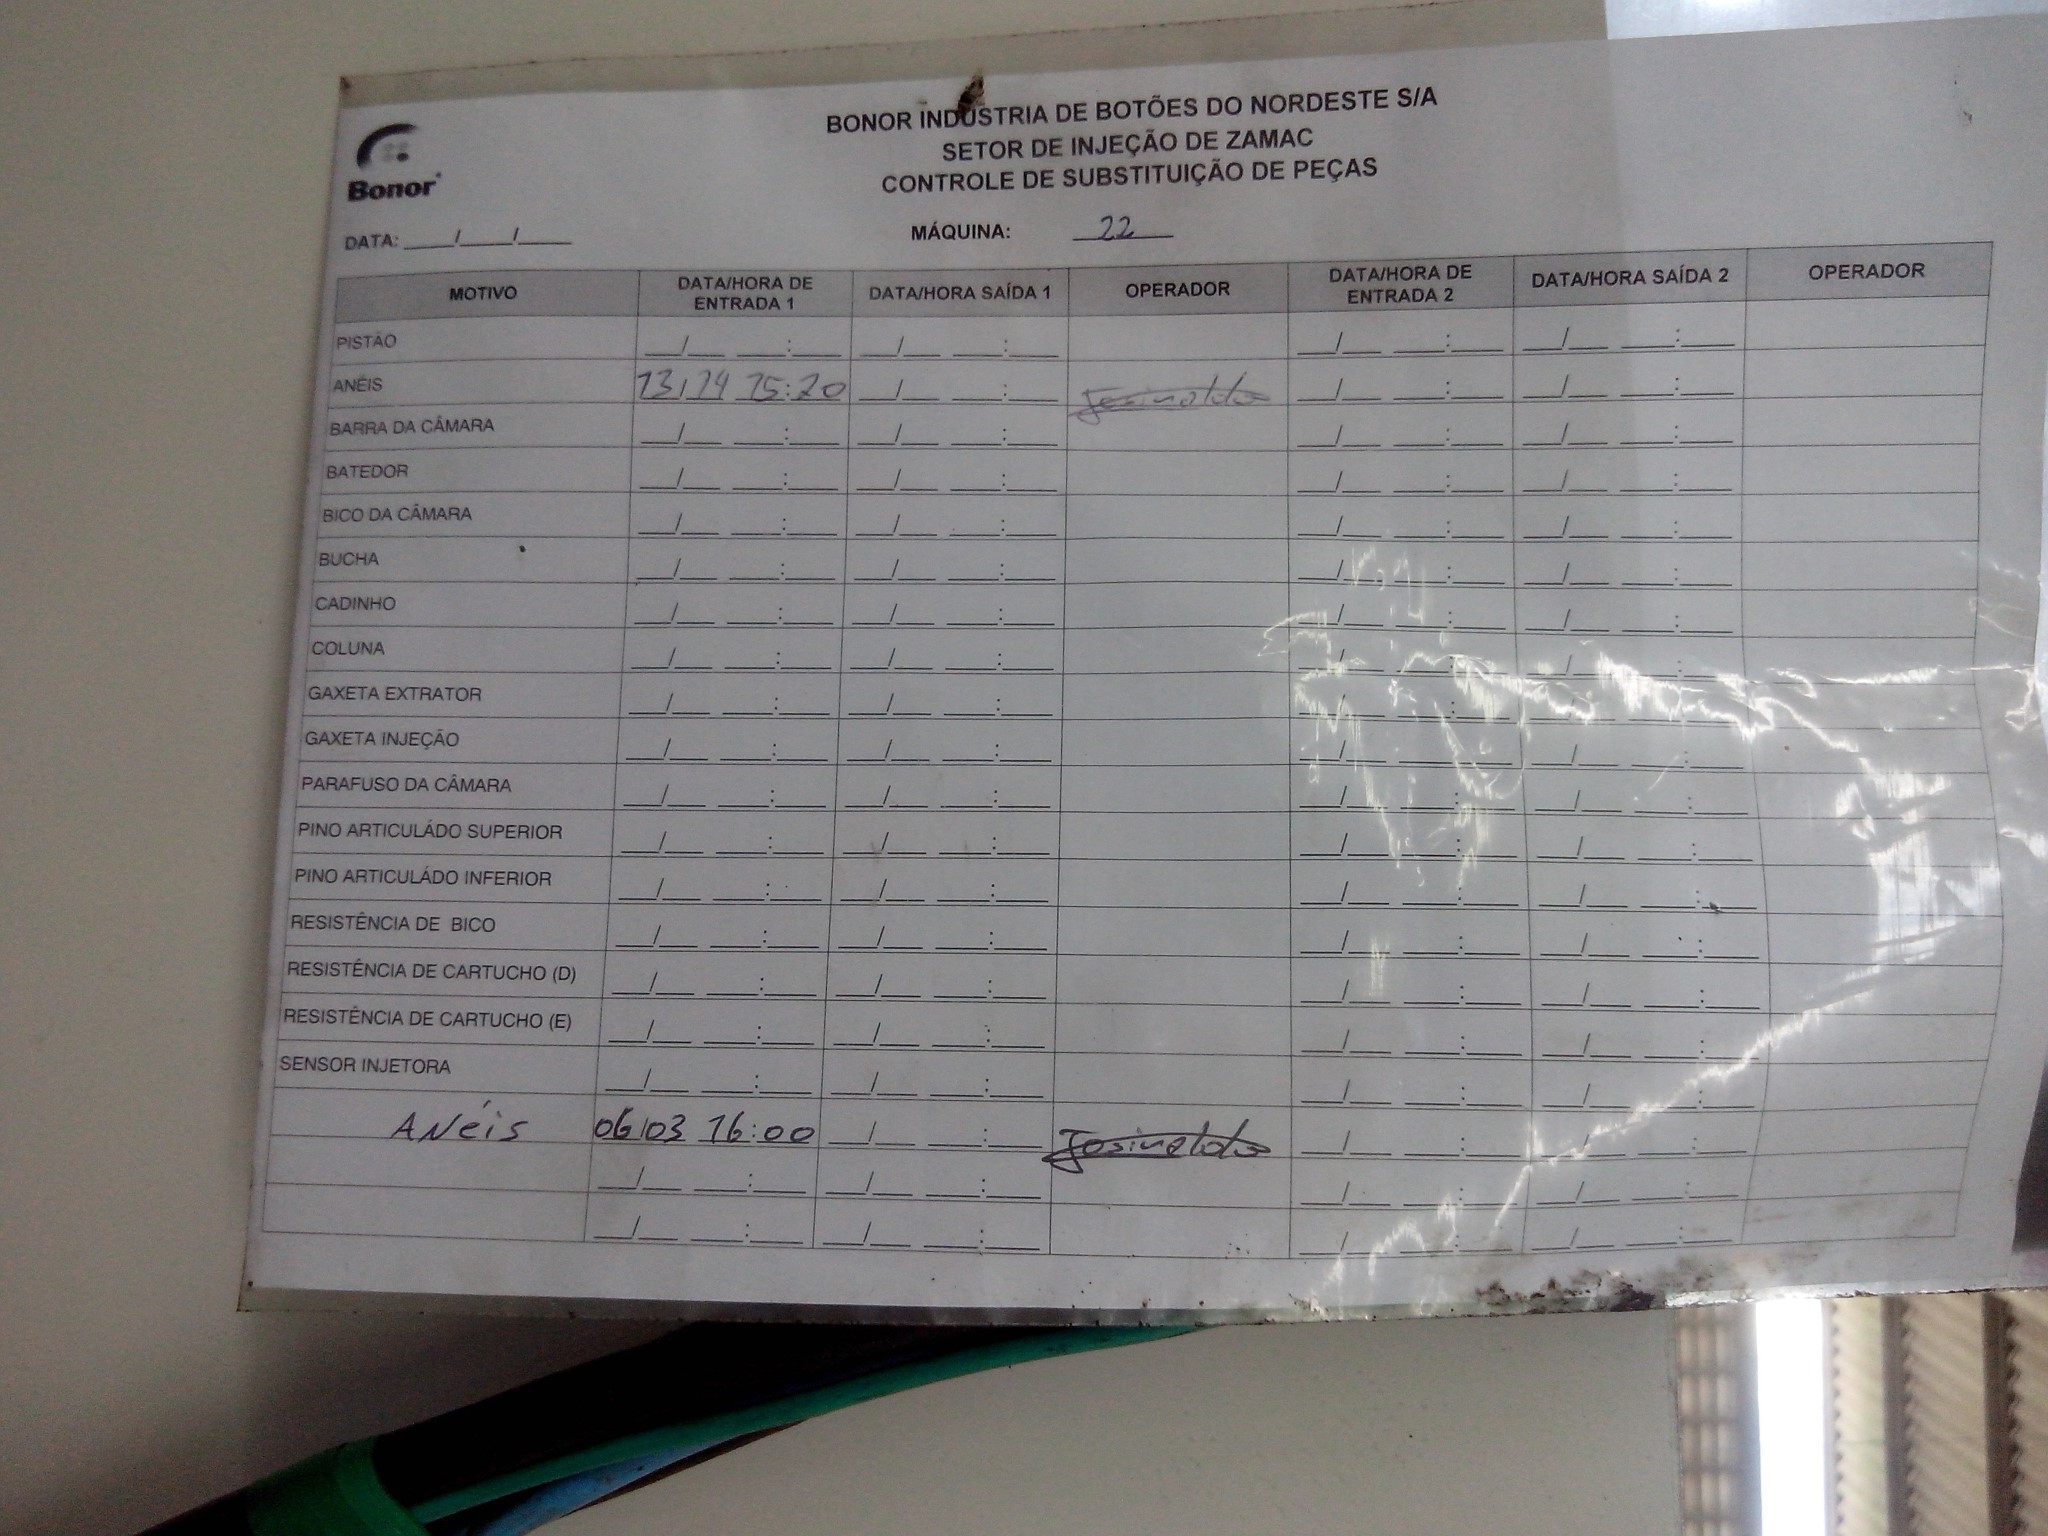 BONOR INDÚSTRIA DE BOTÕES DO NORDESTE S/A
SETOR DE INJEÇÃO DE ZAMAC
CONTROLE DE SUBSTITUIÇÃO DE PEÇAS
Bonor
DATA: ____/____/____ MÁQUINA: 22
MOTIVO DATA/HORA DE ENTRADA 1 DATA/HORA SAÍDA 1 OPERADOR DATA/HORA DE ENTRADA 2 DATA/HORA SAÍDA 2 OPERADOR
PISTÃO
ANÉIS 13/14 15:20 Josinaldo
BARRA DA CÂMARA
BATEDOR
BICO DA CÂMARA
BUCHA
CADINHO
COLUNA
GAXETA EXTRATOR
GAXETA INJEÇÃO
PARAFUSO DA CÂMARA
PINO ARTICULÁDO SUPERIOR
PINO ARTICULÁDO INFERIOR
RESISTÊNCIA DE BICO
RESISTÊNCIA DE CARTUCHO (D)
RESISTÊNCIA DE CARTUCHO (E)
SENSOR INJETORA
ANéis 06/03 16:00 Josinaldo